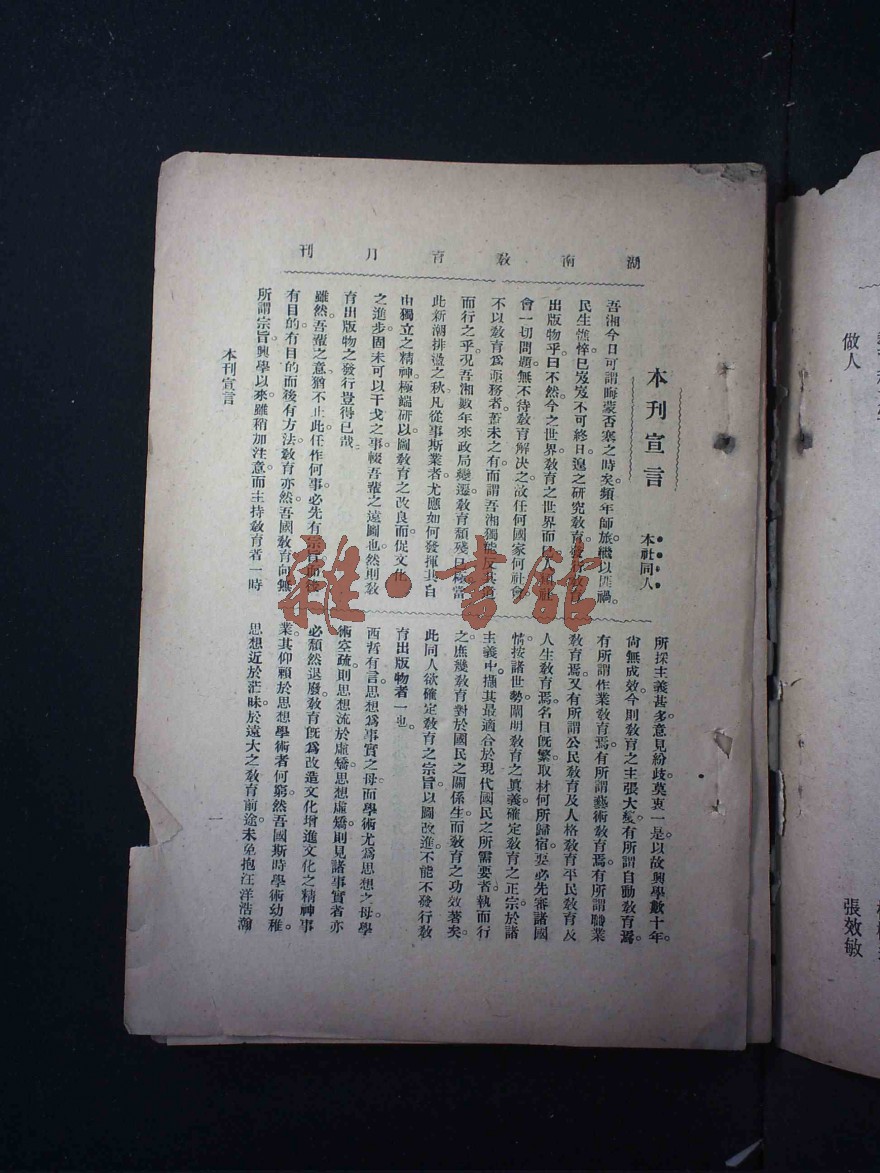 湖南教育月刊
本刊宣言
本社同人
吾湘今日可謂晦蒙否塞之時矣。頻年師旅。繼以匪禍。
民生憔悴。已岌岌不可終日。遑之研究教育。發行教育
出版物乎。曰不然。今之世界。教育之世界而已。人類社
會一切問題。無不待教育解決之。故任何國家何社會。
不以教育爲亟務者。蓋未之有。而謂吾湘獨能反其道
而行之乎。況吾湘數年來。政局變遷。教育頽殘已極。當
此新潮排盪之秋。凡從事斯業者。尤應如何發揮其自
由獨立之精神。極端研以圖教育之改良。而促文化
之進步。固未可以干戈之事。輟吾輩之遠圖也。然則教
育出版物之發行。豈得已哉。
雖然。吾輩之意。猶不止此。任作何事。必先有宗旨。而後
有目的。有目的而後有方法。教育亦然。吾國教育。向無
所謂宗旨。興學以來。雖稍加注意。而主持教育者。一時
所採主義甚多。意見紛歧。莫衷一是。以故興學數十年。
尙無成效。今則教育之主張大變。有所謂自動教育焉。
有所謂作業教育焉。有所謂藝術教育焉。有所謂職業
教育焉。又有所謂公民教育及人格教育平民教育及
人生教育焉。名目旣繁。取材何所歸宿。要必先審諸國
情。按諸世勢。闡明教育之眞義。確定教育之正宗。於諸
主義中。擷其最適合於現代國民之所需要者。執而行
之。庶幾教育對於國民之關係生。而教育之功效著矣。
此同人欲確定教育之宗旨。以圖改進。不能不發行教
育出版物者一也。
西哲有言。思想爲事實之母。而學術尤爲思想之母。學
術空疏。則思想流於虛矯。思想虛矯。則見諸事實者。亦
必頽然退廢。教育旣爲改造文化增進文化之精神事
業。其仰賴於思想學術者何窮。然吾國斯時學術幼稚。
思想近於茫昧。於遠大之教育前途。未免抱汪洋浩瀚
本刊宣言
一
做人
張效敏
雜·書館